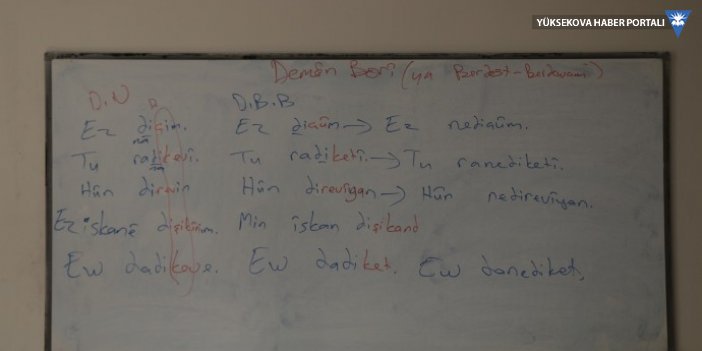 YÜKSEKOVA HABER PORTALI
Demên Borî (ya Berdest-Berdewamî)
D.N D.B.B
Ez diçim. Ez diçûm → Ez nediçûm.
na
Tu radikevî. Tu radiketî. → Tu ranediketî.
na
Hûn direvin Hûn direvîyan → Hûn nedirevîyan.
Ez îskanê dişikînim. Min îskan dişikand
Ew dadikeve. Ew dadiket. Ew danediket.